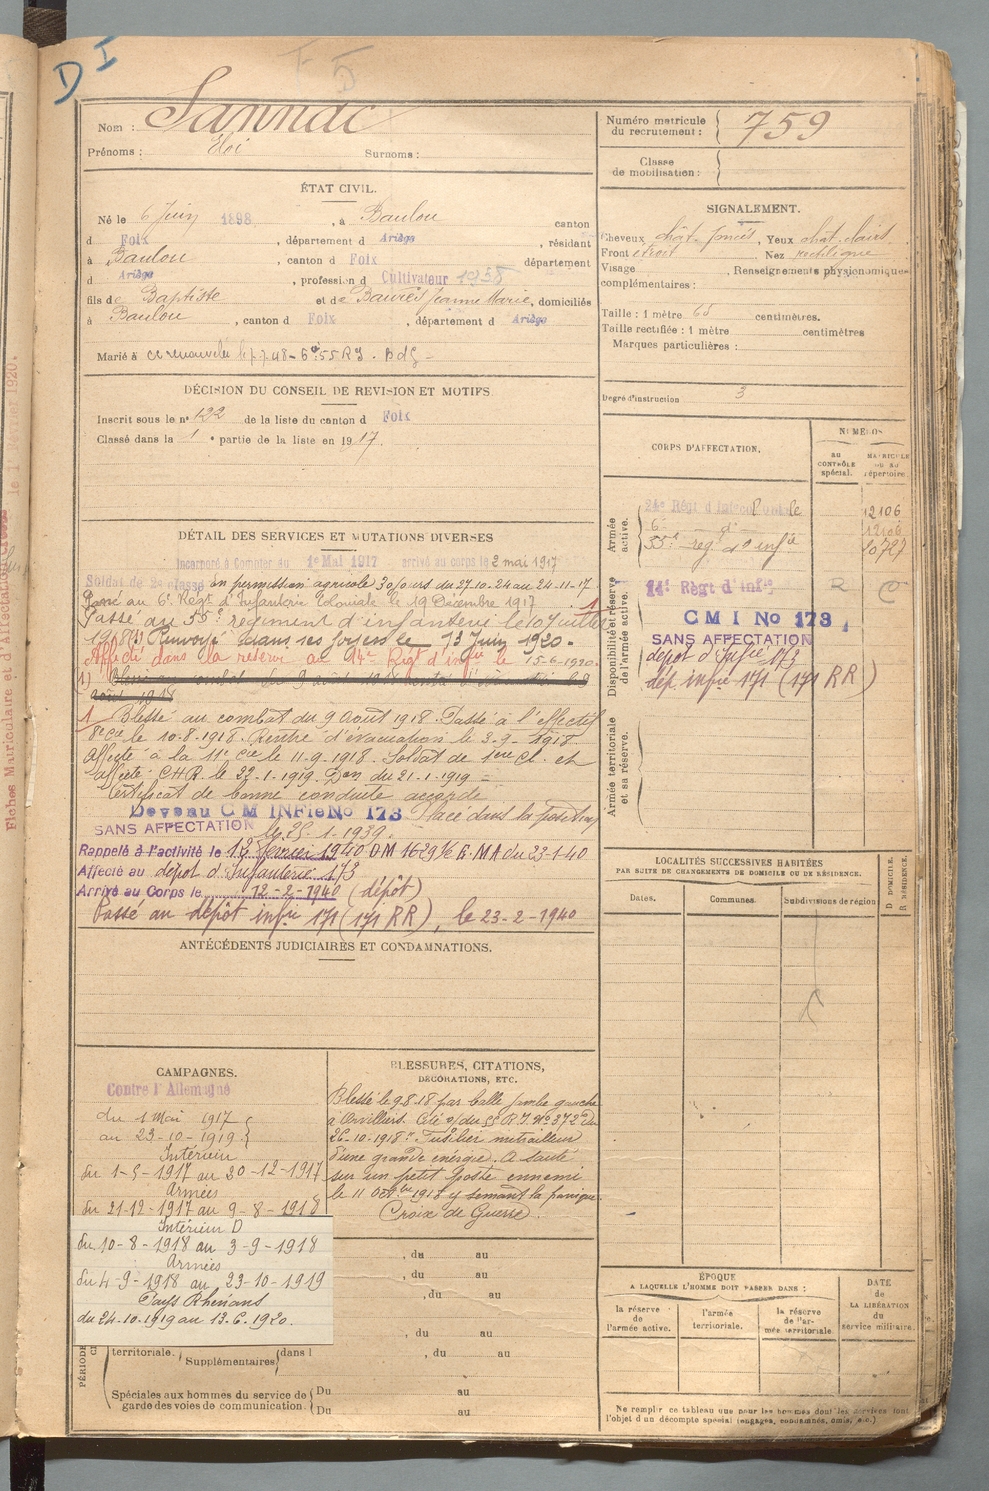 D I
Nom : Sannac
Prénoms : Eloi Surnoms :
Numéro matricule
du recrutement : 759
Classe
de mobilisation :
ÉTAT CIVIL.
Né le 6 Juin 1898, à Baulou canton
d Foix, département d Ariège, résidant
à Baulou, canton d Foix département
d Ariège, profession d Cultivateur
fils de Baptiste et de Baurès Jeanne Marie, domiciliés
à Baulou, canton d Foix, département d Ariège
Marié à
SIGNALEMENT.
Cheveux chât. foncés, Yeux chât. clairs
Front étroit Nez rectiligne
Visage , Renseignements physionomiques
complémentaires :
Taille : 1 mètre 65 centimètres.
Taille rectifiée : 1 mètre centimètres
Marques particulières :
Degré d'instruction 3
DÉCISION DU CONSEIL DE REVISION ET MOTIFS
Inscrit sous le n° 122 de la liste du canton d Foix
Classé dans la 1e partie de la liste en 1917.
CORPS D'AFFECTATION.
NUMÉROS
AU CONTRÔLE spécial.
MATRICULE OU AU répertoire.
Armée active.
24e Régt d'Infie Coloniale 12106
6e d° 12106
55e régt d'infie 10727
Disponibilité et réserve de l'armée active.
14e Régt d'Infie R C
C M I No 173
SANS AFFECTATION
dépôt d'Infie 173
dép. infie 171 (171 RR)
Armée territoriale et sa réserve.
DÉTAIL DES SERVICES ET MUTATIONS DIVERSES
Incorporé à Compter du 1er Mai 1917 arrivé au corps le 2 mai 1917
Soldat de 2e classe En permission agricole 30 jours du 27.10. au 24-11-17.
Passé au 6e Régt d'Infanterie Coloniale le 19 Décembre 1917
Passé au 55e régiment d'infanterie le 10 Juillet
1918 (1) Renvoyé dans ses foyers le 13 Juin 1920.
Affecté dans la réserve au 14e Régt d'infie le 15-6-1920.
1 Blessé au combat du 9 Août 1918. Passé à l'effectif
8e Cie le 10-8-1918. Rentré d'évacuation le 3-9-1918
Affecté à la 11e Cie le 11-9-1918. Soldat de 1ère Cl. et
affecté C.H.R. le 22-1-1919. Don du 21-1-1919
Certificat de bonne conduite accordé
Devenu C M INFie No 173 Placé dans la position
SANS AFFECTATION le 25-1-1939.
Rappelé à l'activité le 12 Février 1940 DM 1629 G. MA du 23-1-40
Affecté au dépôt d'Infanterie 173
Arrivé au Corps le 12-2-1940 (dépôt)
Passé au dépôt infie 171 (171 RR), le 23-2-1940
LOCALITÉS SUCCESSIVES HABITÉES
PAR SUITE DE CHANGEMENTS DE DOMICILE OU DE RÉSIDENCE.
Dates. Communes. Subdivisions de région
D DOMICILE.
R RÉSIDENCE.
ANTÉCÉDENTS JUDICIAIRES ET CONDAMNATIONS.
CAMPAGNES.
Contre l'Allemagne
du 1 Mai 1917
au 23-10-1919
Intérieur
du 1-5-1917 au 20-12-1917
Armées
du 21-12-1917 au 9-8-1918
Intérieur D
du 10-8-1918 au 3-9-1918
Armées
du 4-9-1918 au 23-10-1919
Pays Rhénans
du 24-10-1919 au 13-6-1920.
BLESSURES, CITATIONS,
DÉCORATIONS, ETC.
Blessé le 9.8.18 par balle jambe gauche
à Orvillers. Cité o/ du 55e R.I. N° 372 du
26-10-1918 : Fusilier mitrailleur
d'une grande énergie. A sauté
sur un petit poste ennemi
le 11 Octbre 1918 y semant la panique.
Croix de Guerre.
, du au
, du au
, du au
, du au
territoriale. Supplémentaires dans l , du au
Spéciales aux hommes du service de garde des voies de communication. Du au
Du au
ÉPOQUE
A LAQUELLE L'HOMME DOIT PASSER DANS :
la réserve de l'armée active.
l'armée territoriale.
la réserve de l'armée territoriale.
DATE de LA LIBÉRATION du service militaire.
Ne remplir ce tableau que pour les hommes dont les services font
l'objet d'un décompte spécial (engagés, condamnés, omis, etc.)